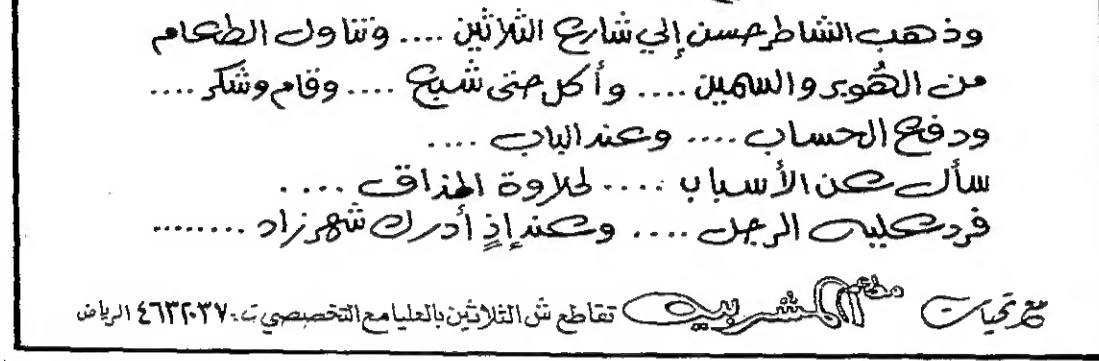 وذهب الشاطر حسن إلي شارع الثلاثين .... وتناول الطعام
من الهُوير والسمين .... وأكل حتى شبع .... وقام وشكر ....
ودفع الحساب .... وعند الباب ....
سأل عن الأسباب .... لحلاوة المذاق ....
فرد عليه الرجل .... وعند إذٍ أدرك شهرزاد ........
مع تحيات مطعم المشربيه تقاطع ش الثلاثين بالعليا مع التخصصي ت: ٤٦٣٢٠٣٧ الرياض